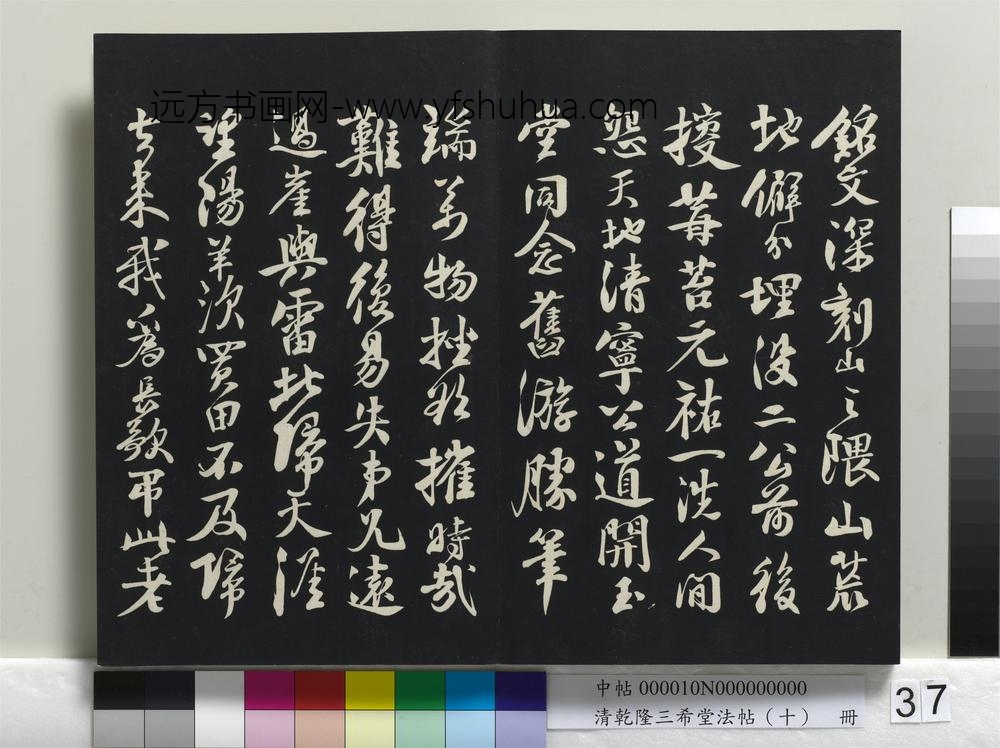 远方书画网-www.yfshuhua.com
銘文深刻山之隈山荒
地僻分埋没二公前後
莓苔元祐一洗人間
怨天地清寧公道開玉
堂同念舊游勝筆
端萬物挫欲摧時哉
難得後易失弟兄遠
過崖與雷北歸天涯
望陽羨買田不及歸
去來我為長歌弔此老
中帖 000010N000000000
清乾隆三希堂法帖（十） 冊
37